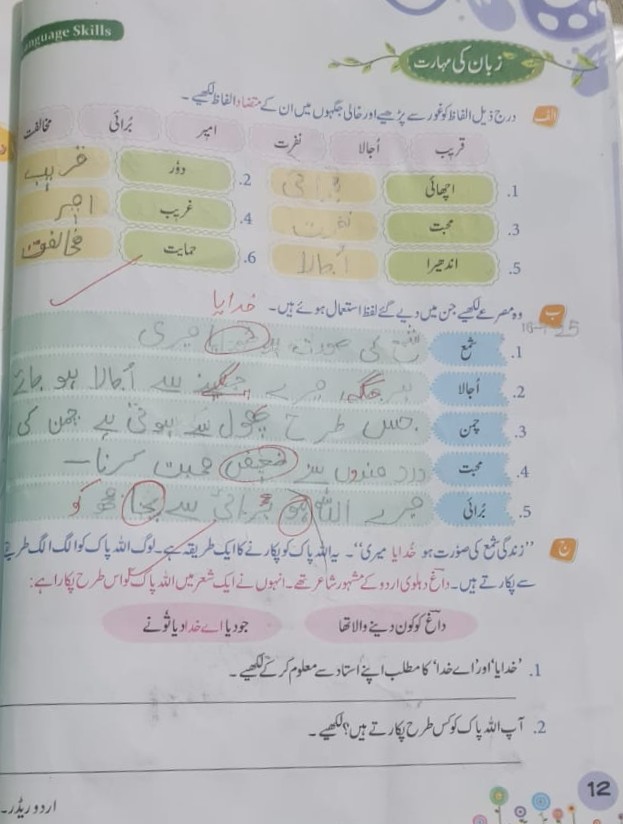 Language Skills
زبان کی مہارت
الف درج ذیل الفاظ کو غور سے پڑھیے اور خالی جگہوں میں ان کے متضاد الفاظ لکھیے ۔
قریب اُجالا نفرت امیر بُرائی مخالفت
1. اچھائی برائی 2. دوُر قریب
3. محبت نفرت 4. غریب امیر
5. اندھیرا اُجالا 6. حمایت مخالفت
ب وہ مصرعے لکھیے جن میں دیے گئے لفظ استعمال ہوئے ہیں۔ خدایا
1. شمع شمع کی صورت ہو میری
2. اُجالا ہر جگہ میرے چمکنے سے اُجالا ہو جائے
3. چمن جس طرح پھول سے ہوتی ہے چمن کی
4. محبت درد مندوں سے ضعیفوں محبت کرنا
5. بُرائی میرے اللہ ہو برائی سے بچا مجھ کو
ج ’’زندگی شمع کی صوُرت ہو خُدایا میری‘‘۔ یہ اللہ پاک کو پکارنے کا ایک طریقہ ہے۔ لوگ اللہ پاک کو الگ الگ طریقے
سے پکارتے ہیں۔ داغؔ دہلوی اردو کے مشہور شاعر تھے۔ انہوں نے ایک شعر میں اللہ پاک کو اس طرح پکارا ہے:
داغؔ کو کون دینے والا تھا جو دیا اے خدا دیا توُ نے
1. ’خدایا‘ اور ’اے خدا‘ کا مطلب اپنے اُستاد سے معلوم کر کے لکھیے ۔
2. آپ اللہ پاک کو کس طرح پکارتے ہیں؟ لکھیے ۔
12
اردو ریڈر۔